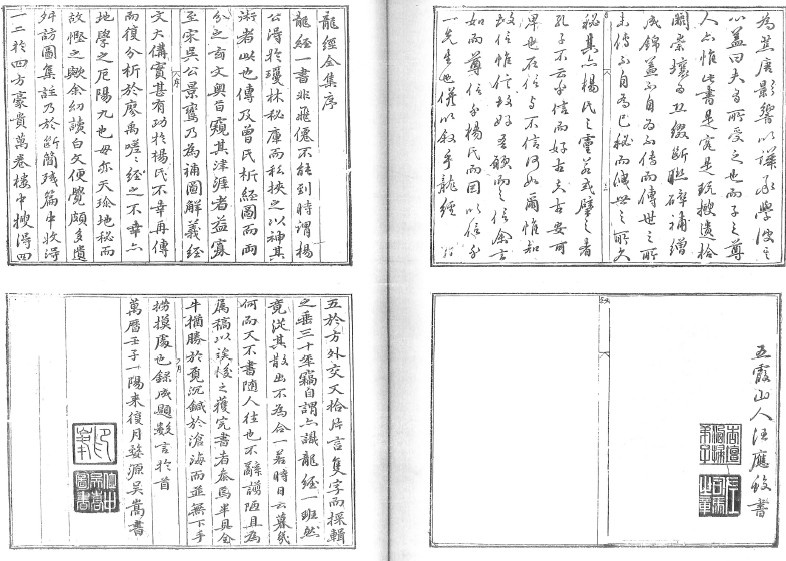 心蓋曰夫有所受之也而子之尊
人亦惟此書是究是玩搜遺拾
成錦蓋不自為不傳而傳世之所
未傳不自為已秘而洩世之所欠
秘其亦楊氏之靈若或之者
孔子不云乎信而好古夫古安可
卑也在信与不信何如爾惟知
致信惟信致好吾願而之信余言
如而尊信乎楊氏而因以信乎
一先生也僅以叙乎龍經
五霞山人汪應書
龍經全集序
龍經一書非飛僊不能到時謂楊
公得於瓊林秘庫而私挾之以神其
術者此也傳及曾氏析經圖而兩
分之奇文奧旨窺其津涯者益寡
至宋吳公景鸞乃為補圖解義經
文大備寔甚有功於楊氏不幸再傳
而復分析於廖禹嗟〻經之不幸亦
地學之厄陽九也毋亦天珍地秘而
故慳之歟余幼讀白文便覺頗多遺
舛訪圖集註乃於斷簡殘篇中收得
一二於四方豪貴萬卷樓中搜得四
五於方外交又拾片言隻字而採輯
之垂三十年竊自謂亦識龍經一班然
竟從其散出不為合一若時日云暮幾
何而天不書隨人往也不辭謭陋且為
屬稿以俟後之獲完書者參焉半具全
牛猶勝於覓沉鍼於滄海而並無下手
撈摸處也録成題數言於首
萬曆壬子一陽來復月婺源吳嵩書